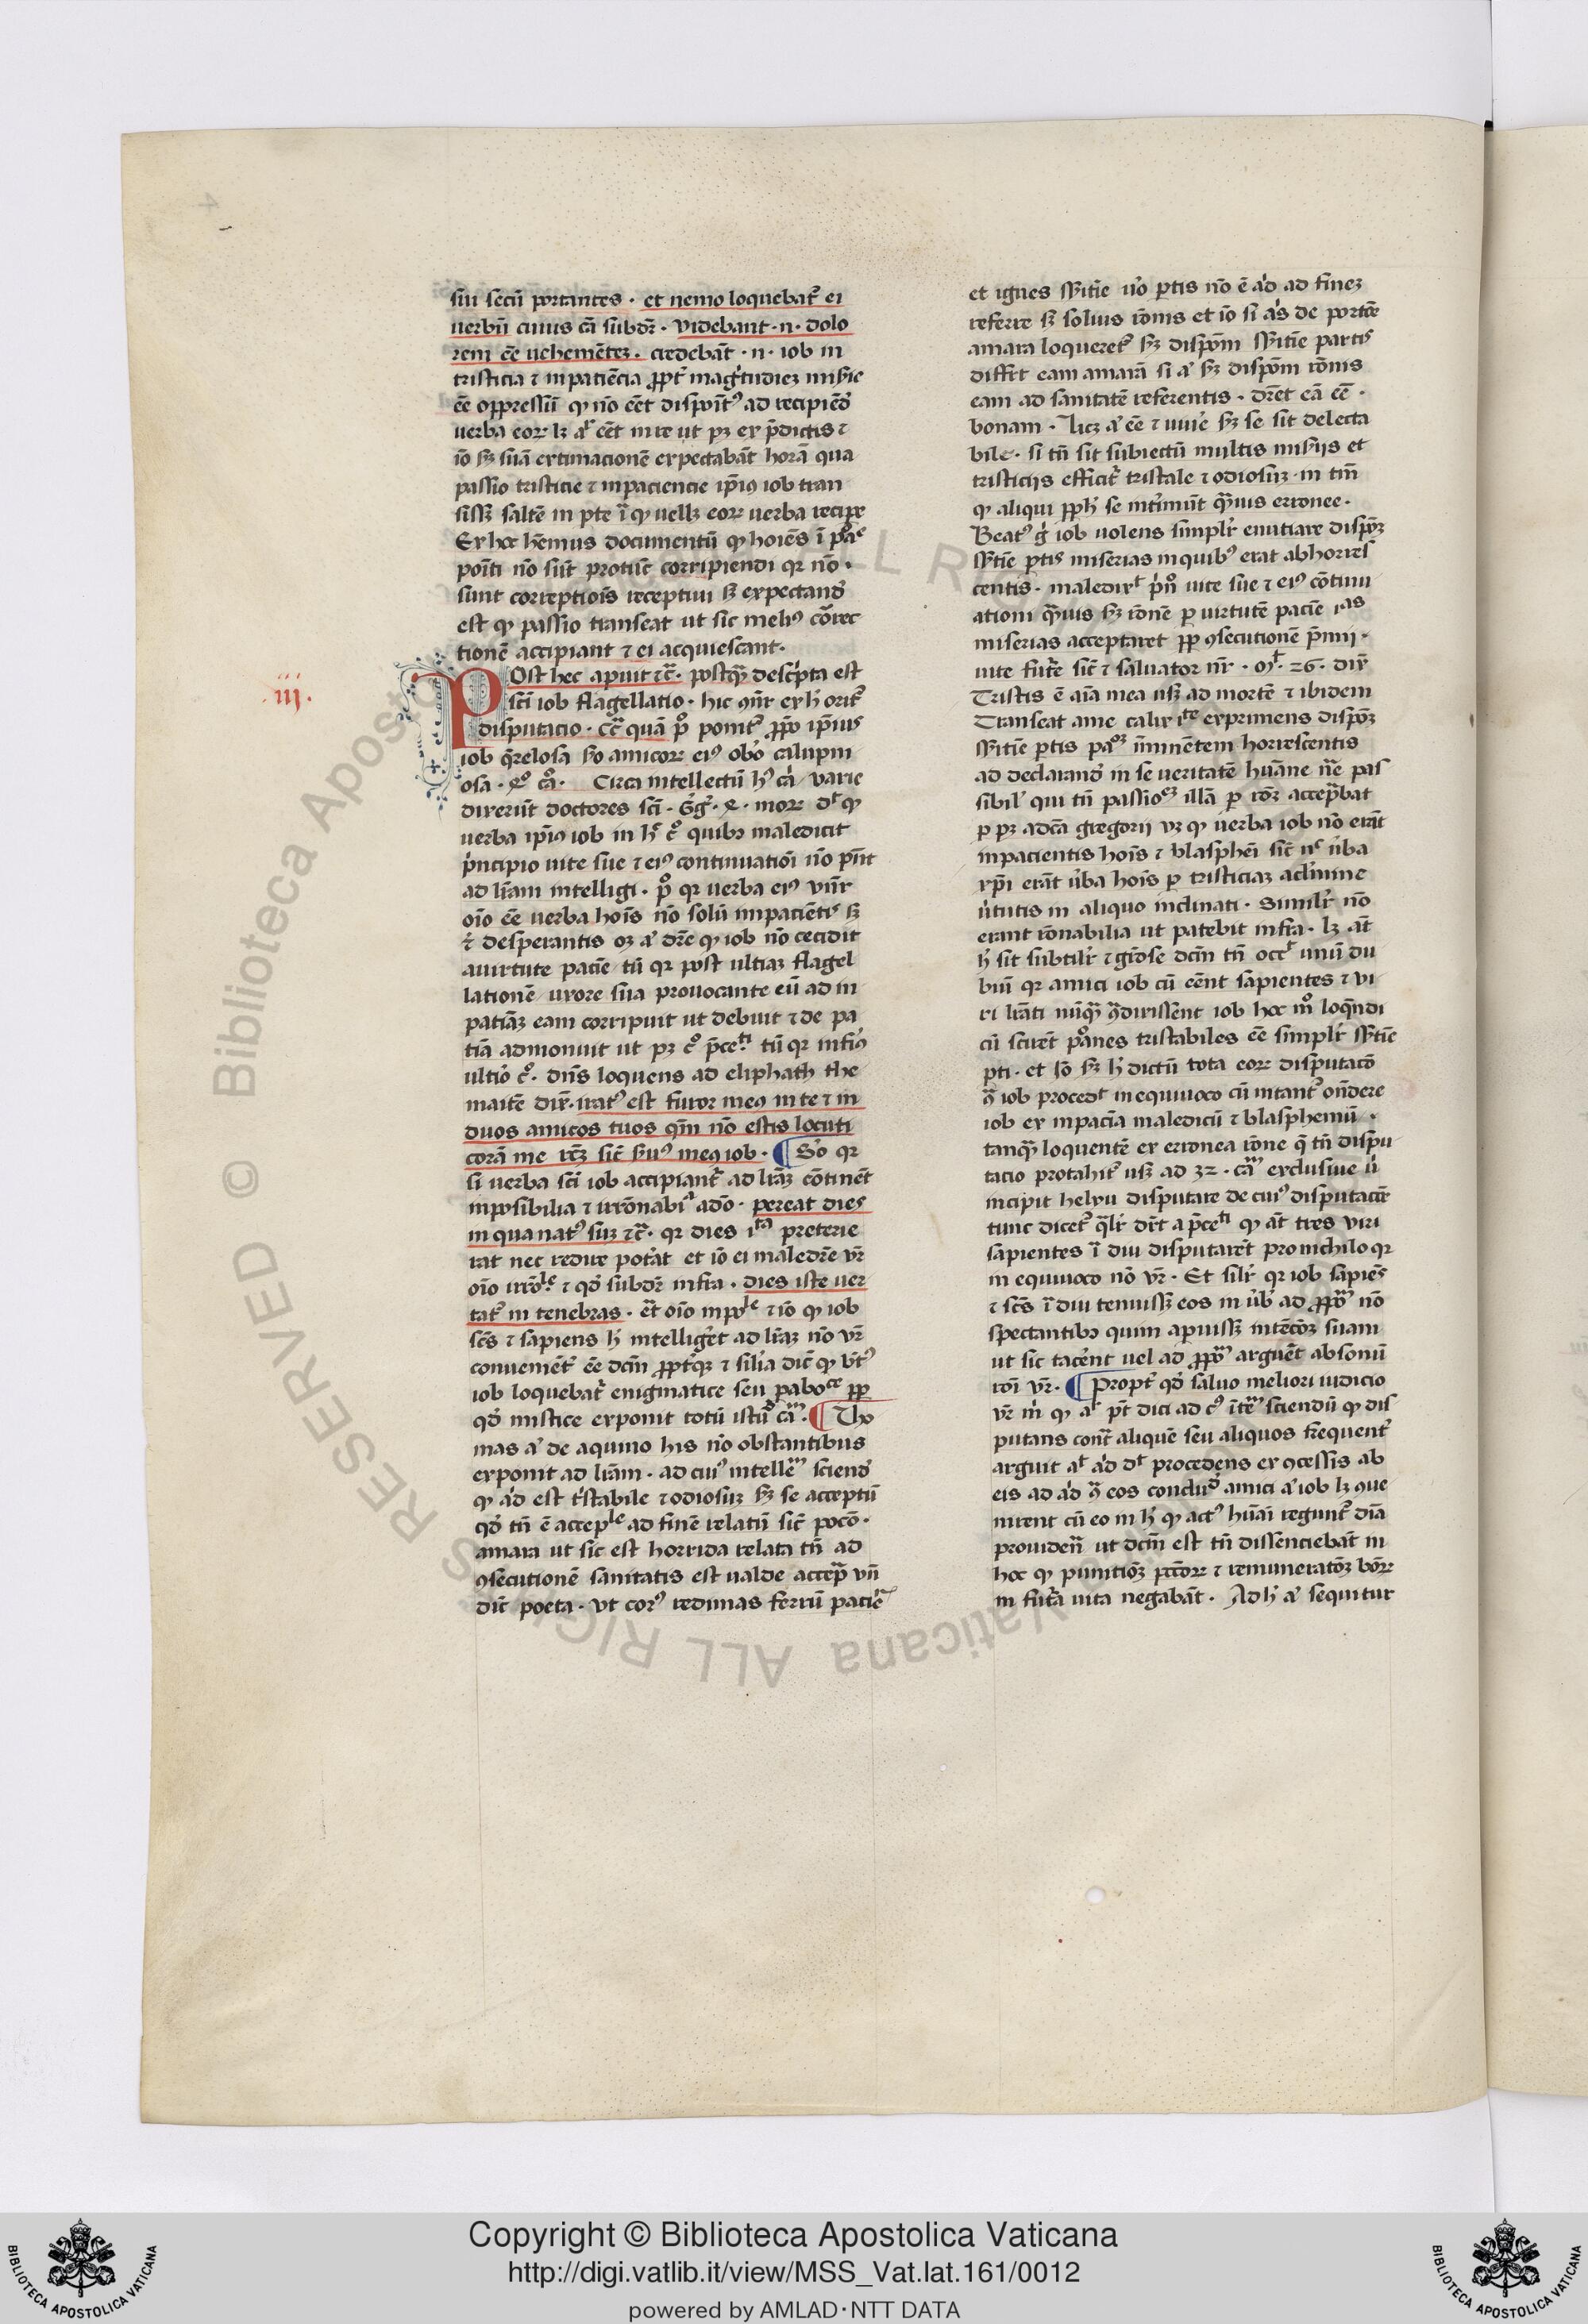 siui secū portantes · et nemo loquebat᷒ ei
uerbū cuius cā subdr̄ · Videbant · n · dolo
rem eē uehemētez · credebāt · n · iob in
tristicia ⁊ inpatiēcia ꝓpt᷒ mag̾tudiez miẜie
eē oppressū ꝙ nō eēt dispoĩt᷒ ad recipiēd̾
uerba eoꝝ lꝫ a᷒ eēt in re ut pꝫ ex p̄dictis ⁊
iō ẜꝫ suā extimacionē expectabāt horā qua
passio tristicie ⁊ inpaciencie ip̄iꝰ iob tran
sissꝫ saltē in ꝑte ĩ ꝙ uellꝫ eoꝝ uerba recipe
Ex hoc hēmus documentū ꝙ hoiēs ĩ
poĩti nō sūt protūc corripiendi qꝛ nō ·
sunt correptiois receptiui ẜꝫ expectand̾
est ꝙ passio transeat ut sic meliꝰ cōrec
tionē accipiant ⁊ ei acquiescant ·
iij ·
POst hec apuit ⁊c̄ · postq̄ꝫ descͥpta est
sci iob flagellatio · hic ꝯn̄r ex h̾ orit᷒
disputacio · Cc̄ quā pͦ ponit᷒ ꝓpo ip̄ius
iob q̄relosa so amicoꝝ eiꝰ obo̾ calupni
osa · Circa intellectū hꝰ cā varie
dixerūt doctores sci · Gg̾ · moꝝ d᷒ ꝙ
uerba ip̄iꝰ iob in h᷒ cͦ quibꝫ maledicit
pͥncipio uite sue ⁊ eiꝰ continuatiōi nō pn̄t
ad lr̄am intelligi · pͦ qꝛ uerba eiꝰ vidn̄r
oīo eē uerba hoīs nō solū impaciētis ẜꝫ
⁊ desperantis oꝫ a᷒ dr̄e ꝙ iob nō cecidit
a uirtute pacie tū qꝛ post ultiaꝫ flagel
lationē uxore sua prouocante eū ad in
patiāꝫ eam corripuit ut debuit ⁊ de pa
tiā admonuit ut pꝫ cͦ p̄ceti tū qꝛ infiꝰ
ultio̾ cͦ · dn̄s loquens ad eliphath the
maitē dix̄ · iratꝰ est furor meꝰ in te ⁊ in
duos amicos tuos qm̄ nō estis locuti
corā me rc̄ꝫ sic̄ ẜuꝰ meꝰ iob · ¶ So qꝛ
si uerba sci iob accipiant᷒ ad lr̄aꝫ cōtinēt
inposibilia ⁊ irrōnabiͣ adō · pereat dies
in qua natꝰ suꝫ ⁊c̄ · qꝛ dies iᵗᵃ preterie
rat nec redire potat et iō ei maledr̄e vr̄
oīo irrōˡᵉ ⁊ qd̾ subdr̄ infra · dies iste uer
tat᷒ in tenebras · eēt oīo inpoˡᵉ ⁊ iō ꝙ iob
scs̄ ⁊ sapiens h̾ intelliget ad lr̄aꝫ nō vr̄
conueniēt᷒ eē dcm̄ ꝓptqꝫ ⁊ silia dic̄ ꝙ
iob loquebat᷒ enigmatice seu ꝑaboᶜᵉ ꝓp
qd̾ mistice exponit totū istū cm̄ · ¶ Tho
mas a᷒ de aquino his nō obstantibus
exponit ad lr̄am · ad cuiꝰ intellēᵐ sciend̾
ꝙ a̾d est tͥstabile ⁊ odiosuꝫ ẜꝫ se acceptū
qd̾ tn̄ ē accepˡᵉ ad finē relatū sic̄ pocō ·
amara ut sic est horrida relata tn̄ ad
ꝯsecutionē sanitatis est ualde accep̄ vn̄
dic̄ poeta · Vt corꝰ redimas ferrū pacie᷒
et ignes sẜitie uo̾ ꝑtis nō ē a̾d ad finez
referre ẜꝫ solius rōnis et iō si a̾s de portōe
amara loqueret᷒ ẜꝫ dispōm sẜitie partis
diffīt eam amarā si a᷒ ẜꝫ dispōm rōnis
eam ad sanitatē referentis · dr̄et eā eē ·
bonam · licꝫ a᷒ eē ⁊ uiue̾ ẜꝫ se sit delecta
bile · si tn̄ sit subiectū multis misẜijs et
tristicijs efficit᷒ tristale ⁊ odiosuꝫ · in tm̄
ꝙ aliqui ꝓph̾ se intimūt q̄uis erronee ·
Beatꝰ g̾ iob uolens simplr̄ enūtiare dispōꝫ
sẜitie ꝑtis miserias in quibꝰ erat abhorres
centis · maledixᵗ pͥnͦ uite sue ⁊ eiꝰ cōtinu
ationi q̄uis ẜꝫ rōnē ꝑ uirtutē pacie iᵃˢ
miserias acceptaret ꝓp ꝯsecutionē p̄mij ·
uite futr̄e sic̄ ⁊ saluator nr̄ · Mᵗ · 26 · dix̄
Tristis ē aīa mea usꝫ ad mortē ⁊ ibidem
Transeat a me calix iᵗᵉ exprimens dispōꝫ
sẜitie ꝑtis paōꝫ īminētem horrescentis
ad declarand̾ in se ueritatē hūane nr̄e pas
sibil᷒ qui tn̄ passioᵉꝫ illā ꝑ rōꝫ acceptabat
ꝑ pꝫ ad cā gregorij vꝫ ꝙ uerba iob nō erāt
inpacientis hoīs ⁊ blasphēi sic̄ nͨ ūba
xp̄i erāt ūba hoīs ꝑ tristiciaꝫ a culmine
ūtutis in aliquo inclinati · Similr̄ nō
erant rōnabilia ut patebit infra · lꝫ at̄
h̾ sit subtilr̄ ⁊ gīose dcm̄ tn̄ occ᷒ unū du
biū qꝛ amici iob cū eēnt sapientes ⁊ vi
ri lr̄ati nūq̄ꝫ ꝯ̄dixissent iob hoc mͦ loq̄ndi
cū scirēt pōnes tristabiles eē simplr̄ sẜitie
ꝑti · et sō ẜꝫ h̾ dictū tota eoꝝ disputacō
ꝯ̄ iob proced᷒ in equiuoco cū nitant᷒ on̄dere
iob ex inpaciā maledicū ⁊ blasphemū ·
tanq̄ꝫ loquentē ex erronea rōne q̄ tn̄ dispu
tacio protahit᷒ usꝫ ad 32 · cᵐ exclusiue u̾
incipit helyu disputare de cuiꝰ disputacōe
tunc dicet᷒ q̄lr̄ dr̄t a p̄ceti ꝙ at̄ tres viri
sapientes ĩ diu disputarēt pro nichilo qꝛ
in equiuoco nō vr̄ · Et silr̄ qꝛ iob sapiēs
⁊ scs̄ ĩ diu tenuissꝫ eos in ūb̾ ad ꝓpoᵐ nō
spectantibꝫ quin apuissꝫ intēcōꝫ suam
ut sic tacēnt uel ad ꝓpoᵐ arguēt absonū
rōi vr̄ · ¶ Propt᷒ qd̾ saluo meliori iudicio
vr̄ m̾ ꝙ a᷒ pt̄ dici ad cꝰ ītm̄ sciendū ꝙ dis
putans cont᷒ aliquē seu aliquos frequent᷒
arguit a᷒ a̾d d᷒ procedens ex ꝯcessis ab
eis ad a̾d ꝯ̄ eos concludͦ amici a᷒ iob lꝫ que
nirent cū eo in h̾ ꝙ actꝰ hūaī regunt᷒ diā
prouidēn̄ ut dcm̄ est tn̄ dissenciebāt in
hoc ꝙ punitiōꝫ pccoꝝ ⁊ remuneratōꝫ bōꝝ
in futr̄a uita negabāt · Ad h̾ a᷒ sequitur
Copyright © Biblioteca Apostolica Vaticana
http://digi.vatlib.it/view/MSS_Vat.lat.161/0012
powered by AMLAD·NTT DATA